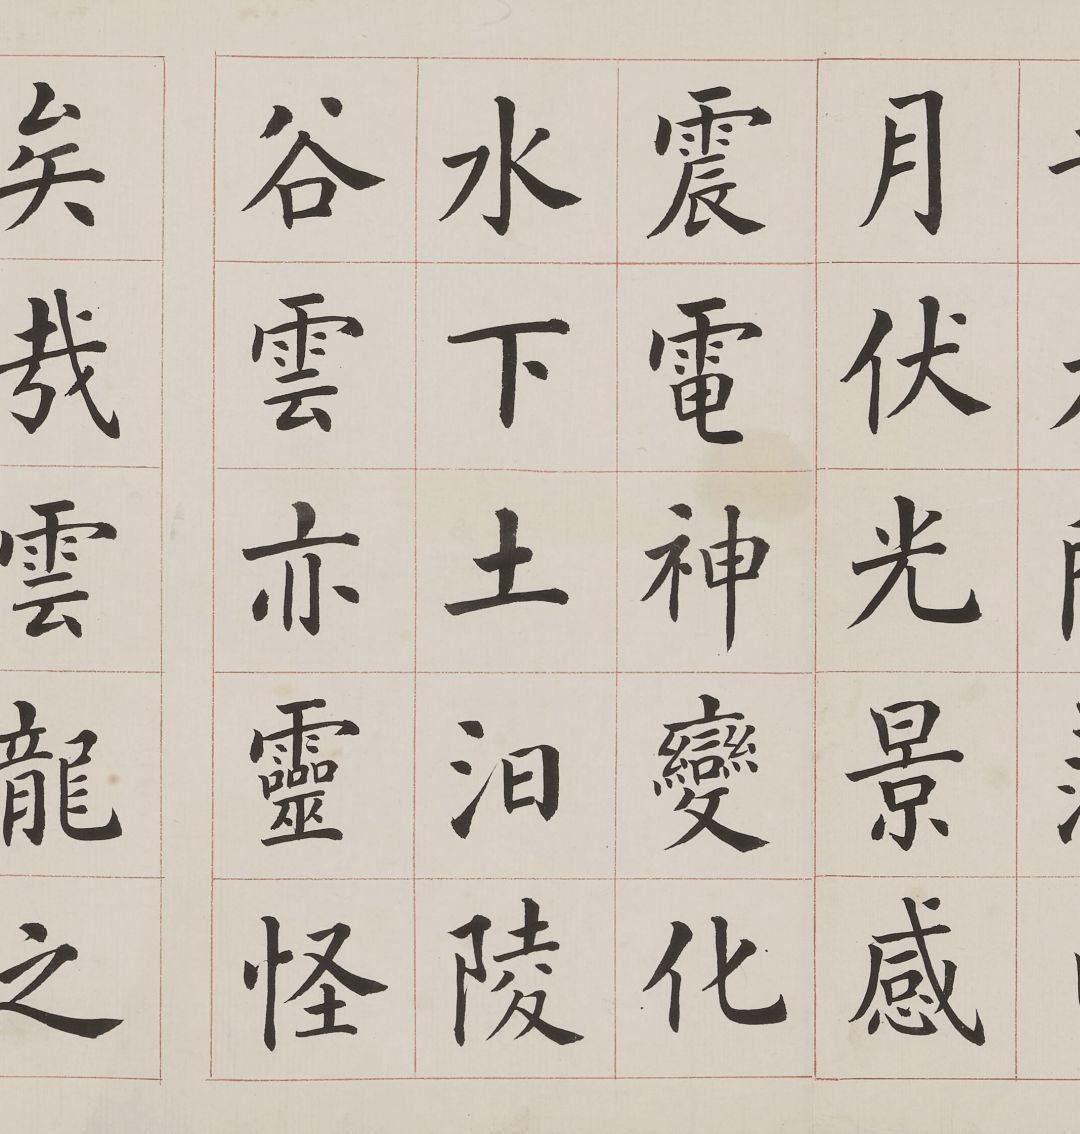 月伏光景感
震電神變化
水下土汩陵
谷雲亦靈怪
矣哉雲龍之